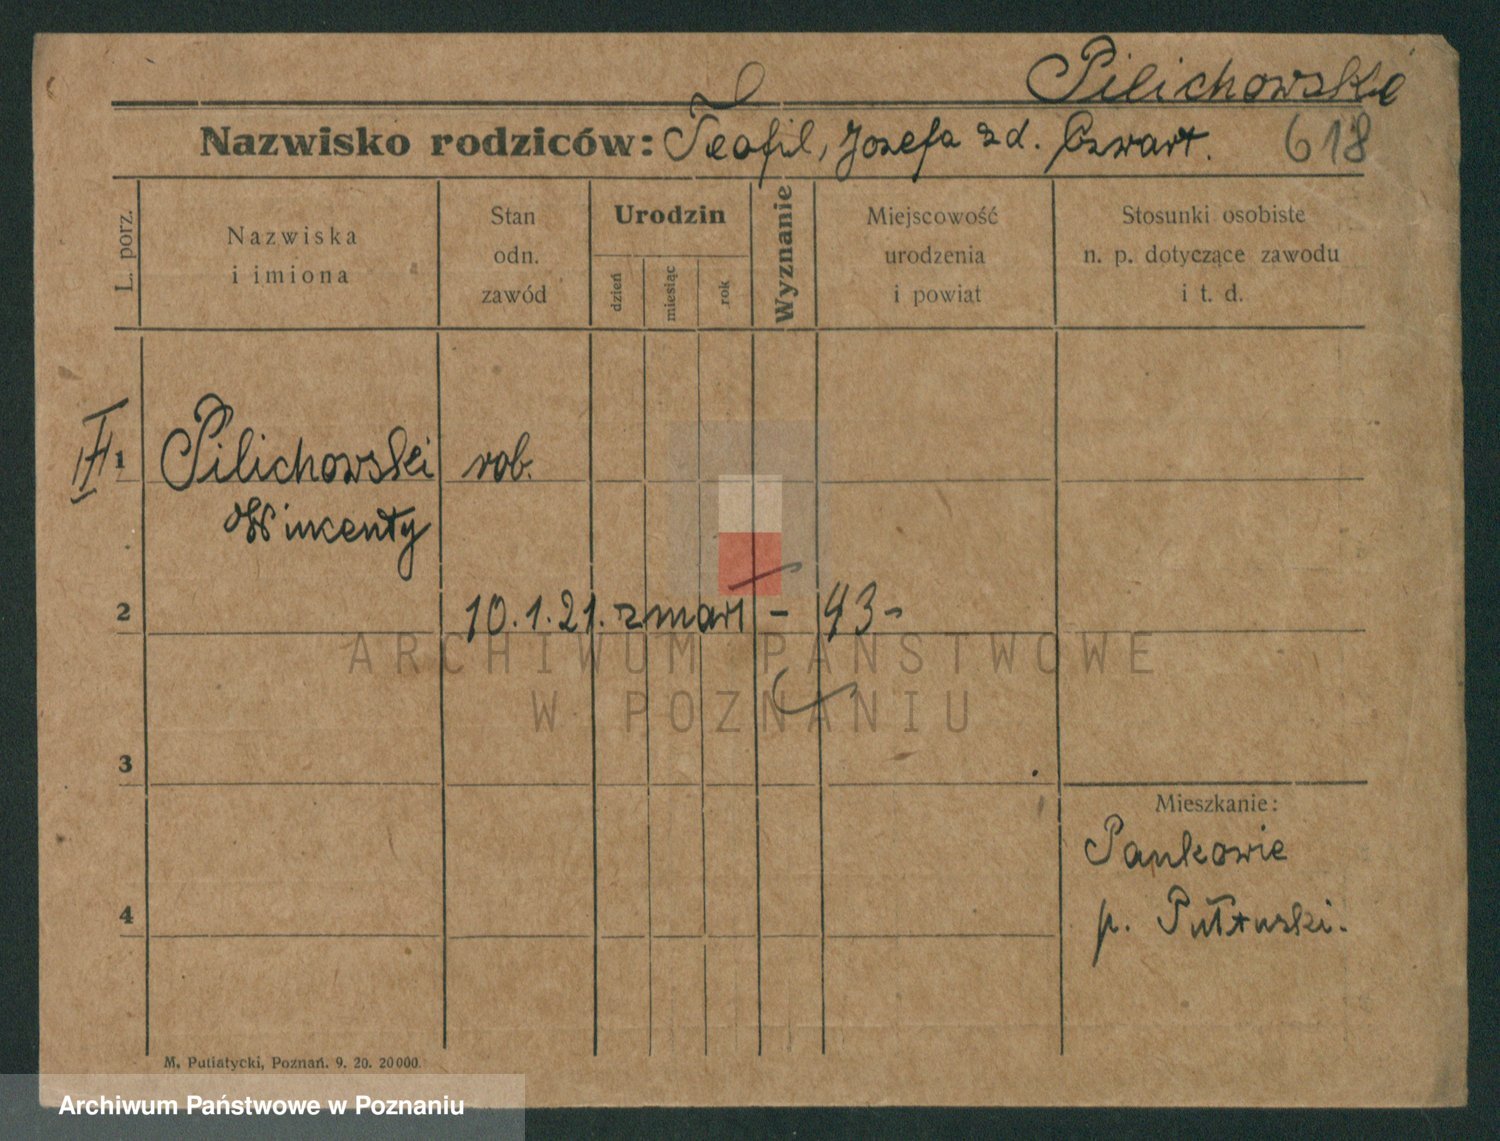 Pilichowski
Nazwisko rodziców: Teofil, Józefa z d. Czwart.
618
L. porz.
Nazwiska
i imiona
Stan
odn.
zawód
Urodzin
dzień
miesiąc
rok
Wyznanie
Miejscowość
urodzenia
i powiat
Stosunki osobiste
n. p. dotyczące zawodu
i t. d.
1
Pilichowski
rob.
Wincenty
2
10.1.21. zmarł - 43-
ARCHIWUM PAŃSTWOWE
W POZNANIU
3
Mieszkanie:
Pankowie
p. Pułtuski.
4
M. Putiatycki, Poznań. 9. 20. 20000.
Archiwum Państwowe w Poznaniu